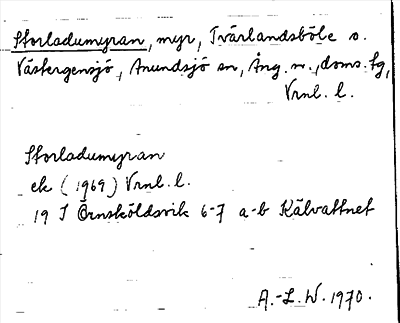 Storladumyran, myr, Tvärlandsböle o.
Västergensjö, Anundsjö sn, Ång. n., doms. tg,
Vrnl. l.
Storladumyran
ek (1969) Vrnl. l.
19 I Örnsköldsvik 6-7 a-b Kälvattnet
A.-L. W. 1970.